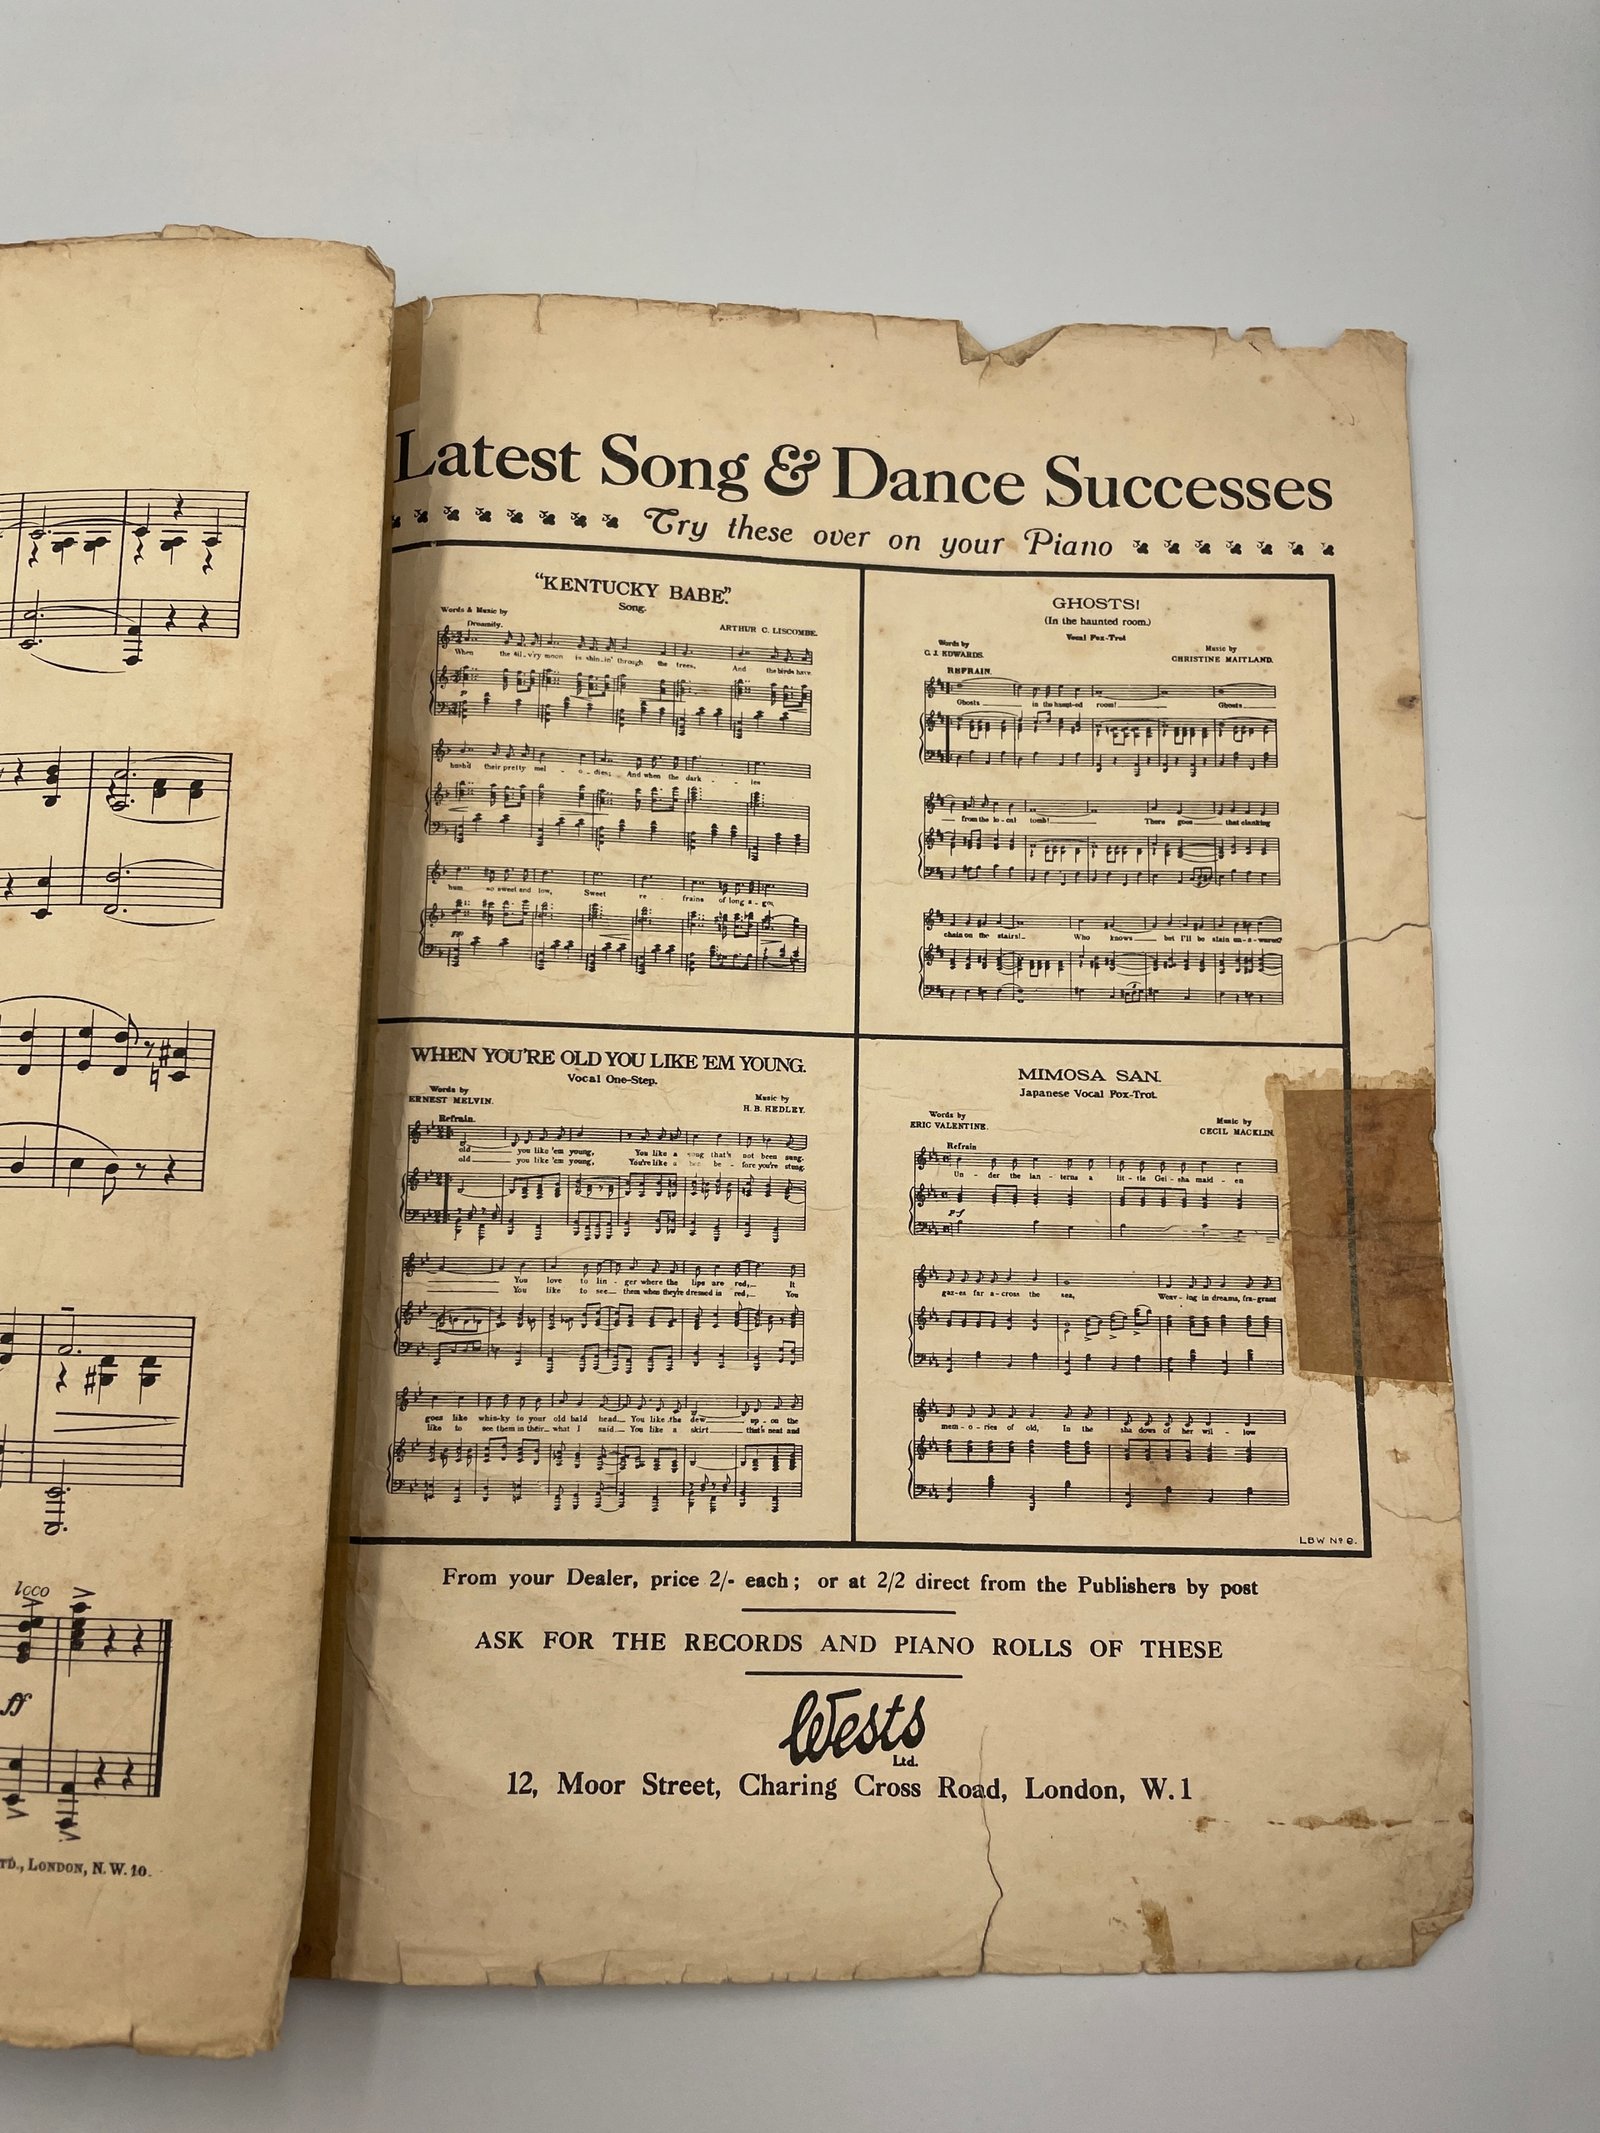 Latest Song & Dance Successes
Try these over on your Piano
"KENTUCKY BABE."
Song.
Words & Music by
ARTHUR C. LISCOMBE.
Dreamily.
When the sil-v'ry moon is shin-in' through the trees, And the birds have
hush'd their pretty mel - o - dies; And when the dark - ies
hum so sweet and low, Sweet re - frains of long a - go,
GHOSTS!
(In the haunted room.)
Vocal Fox-Trot
Words by
G. J. EDWARDS.
Music by
CHRISTINE MAITLAND.
REFRAIN.
Ghosts in the haunt-ed room! Ghosts
from the lo-cal tomb! There goes that clanking
chain on the stairs! Who knows but I'll be slain un-a-wares?
WHEN YOU'RE OLD YOU LIKE 'EM YOUNG.
Vocal One-Step.
Words by
ERNEST MELVIN.
Music by
H. B. HEDLEY.
Refrain.
old you like 'em young, You like a song that's not been sung.
old you like 'em young, You're like a bee be - fore you're stung.
You love to lin - ger where the lips are red, It
You like to see them when they're dressed in red, You
goes like whis-ky to your old bald head You like the dew up - on the
like to see them in their what I said You like a skirt that's neat and
MIMOSA SAN.
Japanese Vocal Fox-Trot.
Words by
ERIC VALENTINE.
Music by
CECIL MACKLIN.
Refrain
Un - der the lan - terns a lit - tle Gei - sha maid - en
p-f
gaz-es far a-cross the sea, Weav - ing in dreams, fra-grant
mem - o - ries of old, In the sha dows of her wil - low
LBW No 9.
From your Dealer, price 2/- each; or at 2/2 direct from the Publishers by post
ASK FOR THE RECORDS AND PIANO ROLLS OF THESE
Wests
Ltd.
12, Moor Street, Charing Cross Road, London, W.1
loco
ff
TD., LONDON, N.W. 10.